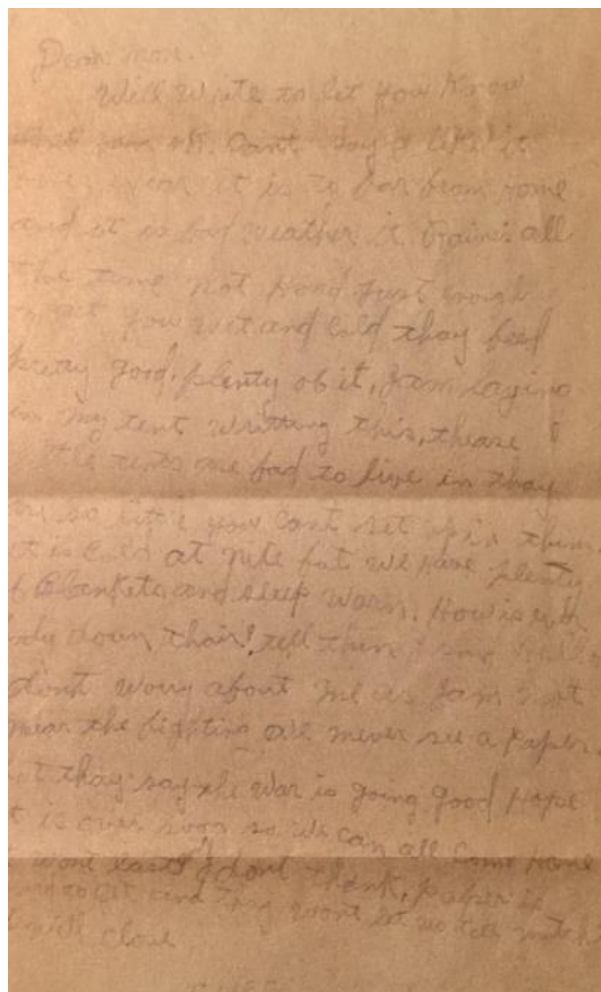 Dear mom.
Well Write to let you Know
am ok. Cant say I like it
hear it is to far from home
and it is bad weather it Rains all
the time not hard Just enough
to get you wet and cold thay feed
pretty good, plenty of it, I am laying
in my tent writting this, thease
little tents are bad to live in thay
are so little you cant set up in them.
it is cold at nite but we have plenty
of Blankets and sleep warm. How is
body down thair! tell them I say hello
dont worry about me as I am not
near the fighting never see a paper.
but thay say the war is going good Hope
it is over soon so we can all come home
wont last I dont think, paper is
hard to get and they wont let us tell much
will close